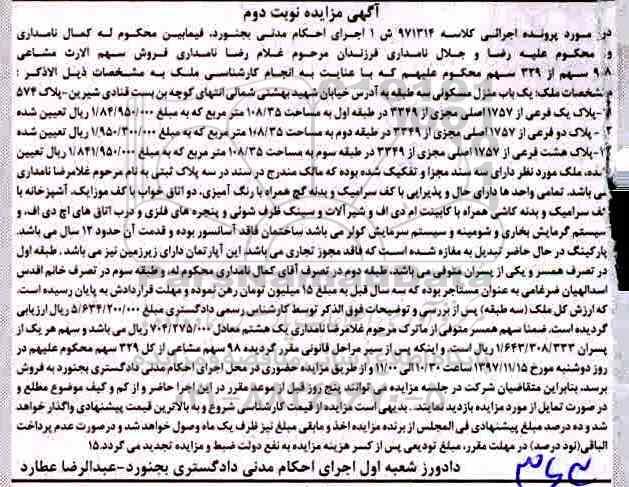 آگهی مزایده نوبت دوم
در مورد پرونده اجرائی کلاسه ۹۷۱۳۱۴ ش ۱ اجرای احکام مدنی بجنورد، فیمابین محکوم له کمال نامداری
و محکوم علیه رضا و جلال نامداری فرزندان مرحوم غلام رضا نامداری فروش سهم الارث مشاعی
۹۸ سهم از ۳۲۹ سهم محکوم علیهم که با عنایت به انجام کارشناسی ملک به مشخصات ذیل الاذکر :
مشخصات ملک: یک باب منزل مسکونی سه طبقه به آدرس خیابان شهید بهشتی شمالی انتهای کوچه بن بست قنادی شیرین-پلاک ۵۷۴
۱-پلاک یک فرعی از ۱۷۵۷ اصلی مجزی از ۳۳۴۹ در طبقه اول به مساحت ۱۰۸/۳۵ متر مربع که به مبلغ ۱/۸۴۱/۹۵۰/۰۰۰ ریال تعیین شده
۲-پلاک دو فرعی از ۱۷۵۷ اصلی مجزی از ۳۳۴۹ در طبقه دوم به مساحت ۱۰۸/۳۵ متر مربع که به مبلغ ۱/۹۵۰/۳۰۰/۰۰۰ ریال تعیین شده
۳-پلاک هشت فرعی از ۱۷۵۷ اصلی مجزی از ۳۳۴۹ در طبقه سوم به مساحت ۱۰۸/۳۵ متر مربع که به مبلغ ۱/۸۴۱/۹۵۰/۰۰۰ ریال تعیین
شده، ملک مورد نظر دارای سه سند مجزا و تفکیک شده بوده که مالک مندرج در سند در سه پلاک ثبتی به نام مرحوم غلامرضا نامداری
می باشد. تمامی واحد ها دارای حال و پذیرایی با کف سرامیک و بدنه گچ همراه با رنگ آمیزی، دو اتاق خواب با کف موزایک، آشپزخانه با
کف سرامیک و بدنه کاشی همراه با کابینت ام دی اف و شیرآلات و سینک ظرف شوئی و پنجره های فلزی و درب اتاق های اچ دی اف، و
سیستم گرمایش بخاری و شومینه و سیستم سرمایش کولر می باشد ساختمان فاقد آسانسور بوده و قدمت آن حدود ۱۲ سال می باشد.
پارکینگ در حال حاضر تبدیل به مغازه شده است که فاقد مجوز تجاری می باشد. این آپارتمان دارای زیرزمین نیز می باشد . طبقه اول
در تصرف همسر و یکی از پسران متوفی می باشد، طبقه دوم در تصرف آقای کمال نامداری محکوم له، و طبقه سوم در تصرف خانم اقدس
اسدالهیان ضرغامی به عنوان مستاجر بوده که سه سال قبل به مبلغ ۱۵ میلیون تومان رهن نموده و مهلت قراردادش به پایان رسیده است.
که ارزش کل ملک (سه طبقه) پس از بررسی و توضیحات فوق الذکر توسط کارشناس رسمی دادگستری مبلغ ۵/۶۳۴/۲۰۰/۰۰۰ ریال ارزیابی
گردیده است. ضمنا سهم همسر متوفی از ماترک مرحوم غلامرضا نامداری یک هشتم معادل ۷۰۴/۲۷۵/۰۰۰ ریال می باشد و سهم هر یک از
پسران ۱/۶۴۳/۳۰۸/۳۳۳ ریال است. و اینکه پس از سیر مراحل قانونی مقرر گردیده ۹۸ سهم مشاعی از کل ۳۲۹ سهم محکوم علیهم در
روز دوشنبه مورخ ۱۳۹۷/۱۱/۱۵ ساعت ۱۰/۳۰ الی ۱۱/۰۰ و از طریق مزایده حضوری در محل اجرای احکام مدنی دادگستری بجنورد به فروش
برسد. بنابراین متقاضیان شرکت در جلسه مزایده می توانند پنج روز قبل از موعد مقرر در این اجرا حاضر و از کم و کیف موضوع مطلع و
در صورت تمایل از مورد مزایده بازدید نمایند . بدیهی است مزایده از قیمت کارشناسی شروع و به بالاترین قیمت پیشنهادی واگذار خواهد
شد و ده درصد مبلغ پیشنهادی فی المجلس از برنده مزایده اخذ و مابقی مبلغ نیز ظرف یک ماه وصول خواهد شد و درصورت عدم پرداخت
الباقی(نود درصد) در مهلت مقرر، مبلغ تودیعی پس از کسر هزینه مزایده به نفع دولت ضبط و مزایده تجدید می گردد.۱۵
دادورز شعبه اول اجرای احکام مدنی دادگستری بجنورد-عبدالرضا عطارد